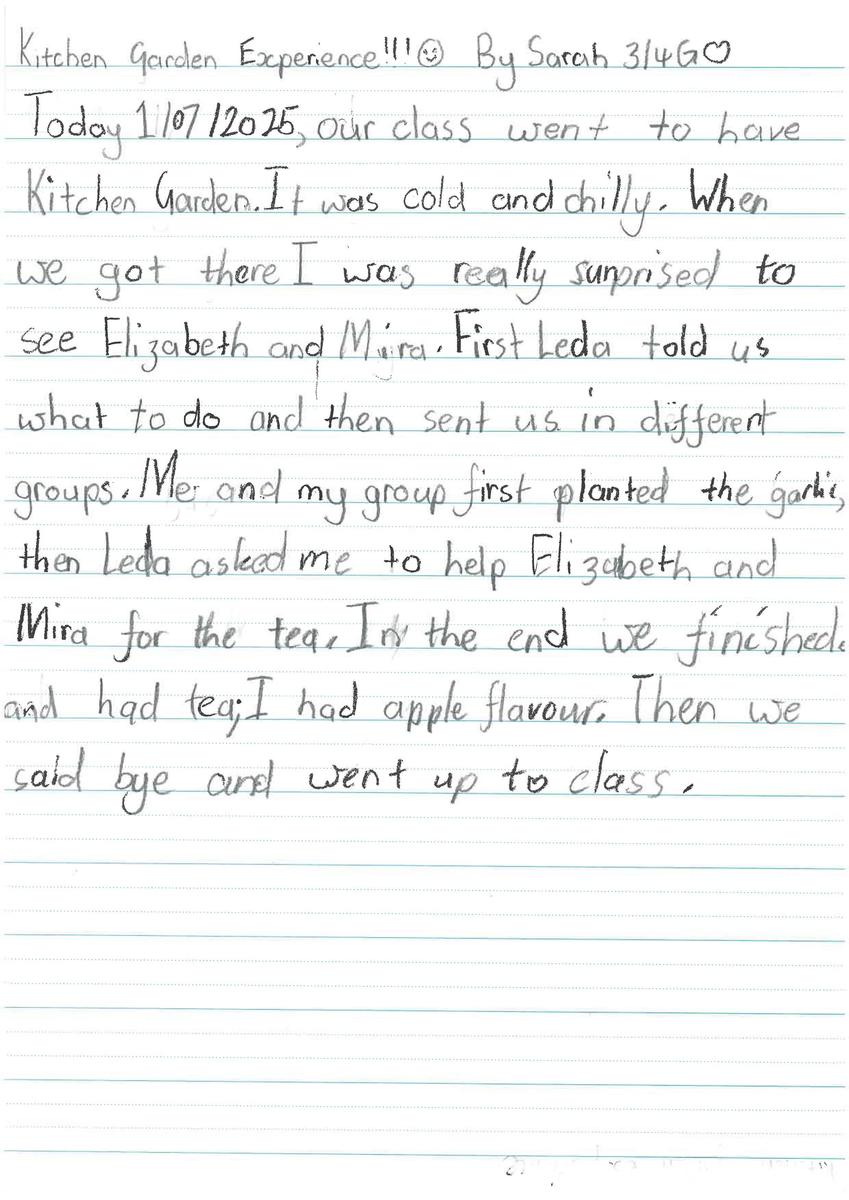 Kitchen Garden Experience!!!☺ By Sarah 3/4G♡
Today 1/07/2025, our class went to have
Kitchen Garden. It was cold and chilly. When
we got there I was really surprised to
see Elizabeth and Mira. First Leda told us
what to do and then sent us in different
groups. Me and my group first planted the garlic,
then Leda asked me to help Elizabeth and
Mira for the tea. In the end we finished.
and had tea; I had apple flavour. Then we
said bye and went up to class.